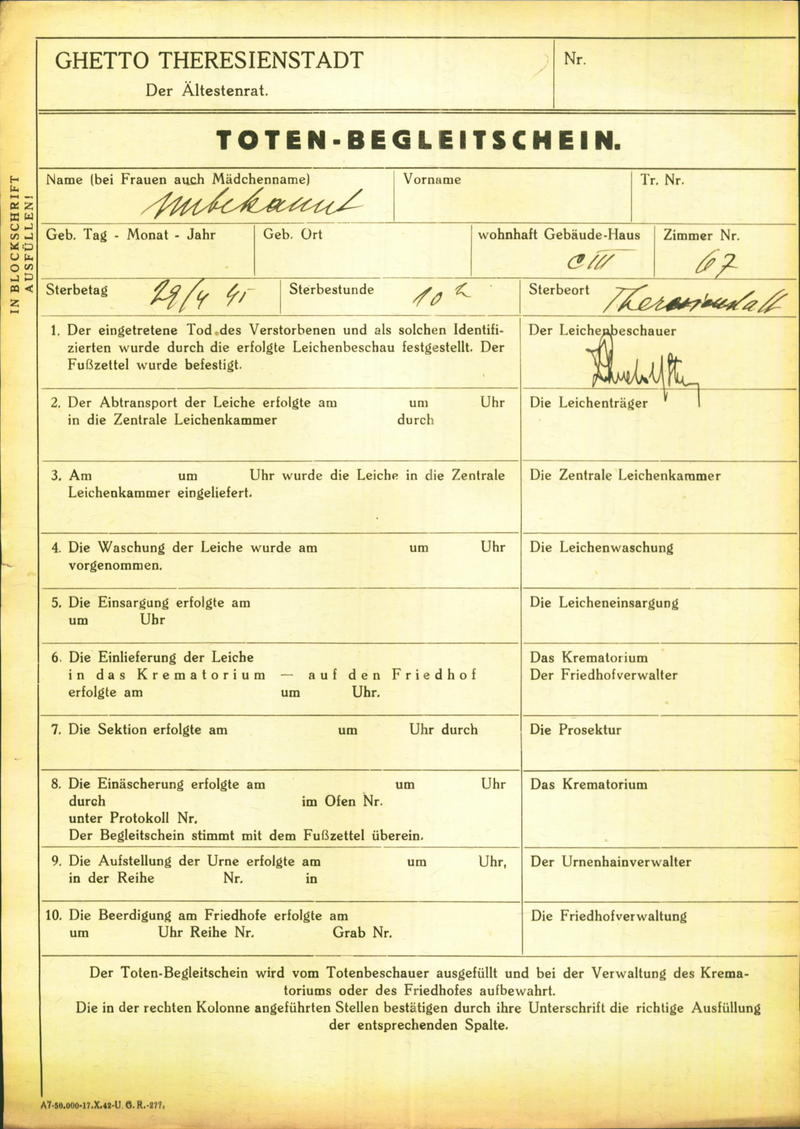 GHETTO THERESIENSTADT
Der Ältestenrat.
Nr.
TOTEN-BEGLEITSCHEIN.
IN BLOCKSCHRIFT
AUSFÜLLEN!
Name (bei Frauen auch Mädchenname)
Unbekannt
Vorname
Tr. Nr.
Geb. Tag - Monat - Jahr
Geb. Ort
wohnhaft Gebäude-Haus
C III
Zimmer Nr.
67
Sterbetag 29/4 45
Sterbestunde 10 h
Sterbeort Theresienstadt
1. Der eingetretene Tod des Verstorbenen und als solchen Identifi-
zierten wurde durch die erfolgte Leichenbeschau festgestellt. Der
Fußzettel wurde befestigt.
Der Leichenbeschauer
2. Der Abtransport der Leiche erfolgte am um Uhr
in die Zentrale Leichenkammer durch
Die Leichenträger
3. Am um Uhr wurde die Leiche in die Zentrale
Leichenkammer eingeliefert.
Die Zentrale Leichenkammer
4. Die Waschung der Leiche wurde am um Uhr
vorgenommen.
Die Leichenwaschung
5. Die Einsargung erfolgte am
um Uhr
Die Leicheneinsargung
6. Die Einlieferung der Leiche
in das Krematorium — auf den Friedhof
erfolgte am um Uhr.
Das Krematorium
Der Friedhofverwalter
7. Die Sektion erfolgte am um Uhr durch
Die Prosektur
8. Die Einäscherung erfolgte am um Uhr
durch im Ofen Nr.
unter Protokoll Nr.
Der Begleitschein stimmt mit dem Fußzettel überein.
Das Krematorium
9. Die Aufstellung der Urne erfolgte am um Uhr,
in der Reihe Nr. in
Der Urnenhainverwalter
10. Die Beerdigung am Friedhofe erfolgte am
um Uhr Reihe Nr. Grab Nr.
Die Friedhofverwaltung
Der Toten-Begleitschein wird vom Totenbeschauer ausgefüllt und bei der Verwaltung des Krema-
toriums oder des Friedhofes aufbewahrt.
Die in der rechten Kolonne angeführten Stellen bestätigen durch ihre Unterschrift die richtige Ausfüllung
der entsprechenden Spalte.
A7-50.000-17.X.42-U. G. R.-277.